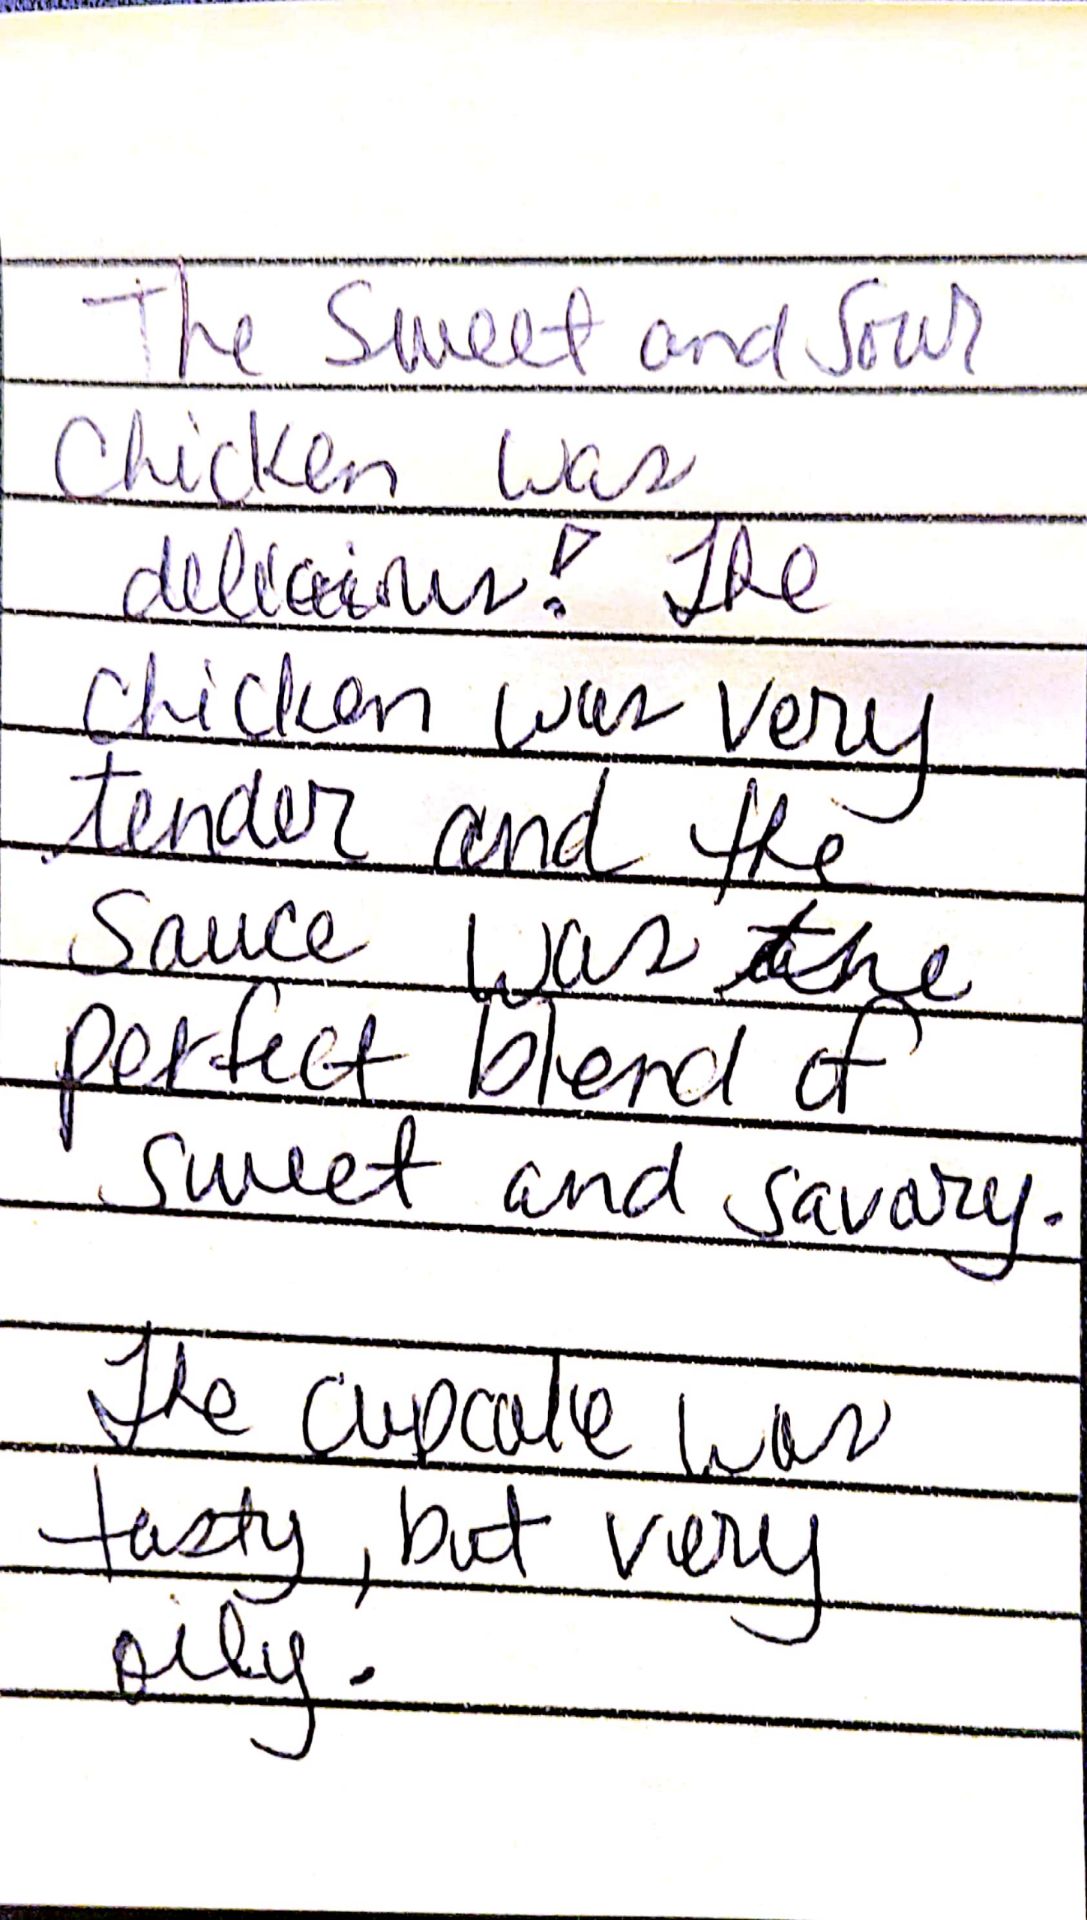 The Sweet and Sour
Chicken was
delicious! The
chicken was very
tender and the
sauce was the
perfect blend of
sweet and savory.
The cupcake was
tasty, but very
oily.